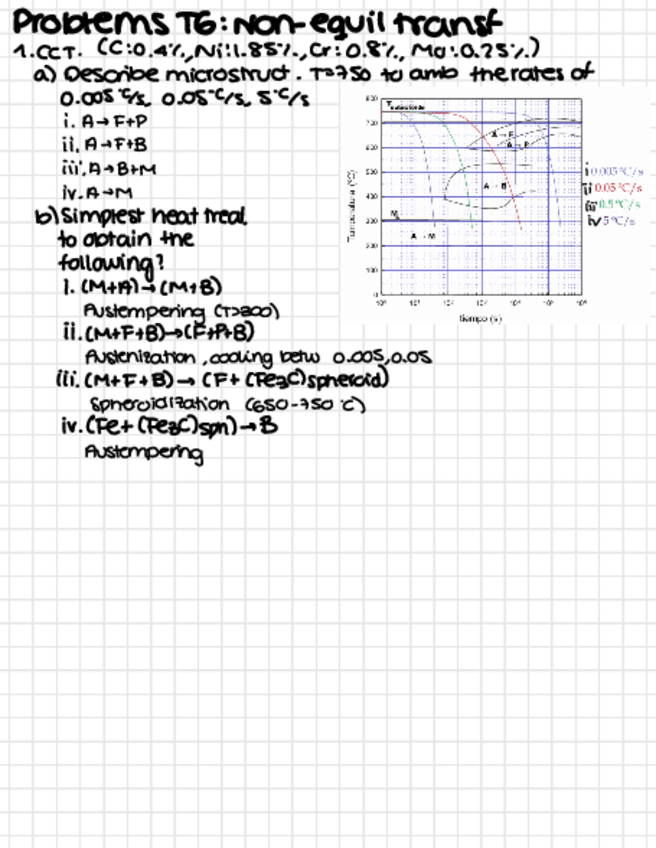 Problems T6: Non-equil transf
1. CCT. (C:0.4%, Ni:1.85%, Cr:0.8%, Mo:0.25%)
a) Describe microstruct. T=750 to amb the rates of
0.005 °C/s, 0.05 °C/s, 5 °C/s
i. A→F+P
ii. A→F+B
iii. A→B+M
iv. A→M
b) Simplest heat treat
to obtain the
following?
i. (M+A)→(M+B)
Austempering (T>300)
ii. (M+F+B)→(F+P+B)
Austenization, cooling betw 0.005, 0.05
iii. (M+F+B)→ (F+ (Fe3C) spheroid)
Spheroidization (650-750 °C)
iv. (Fe+ (Fe3C) sph)→B
Austempering
Temperatura (°C)
800
700
600
500
400
300
200
100
0
A→F
A→P
A→B
Ms
A→M
tiempo (s)
i 0.005 °C/s
ii 0.05 °C/s
iii 0.5 °C/s
iv 5 °C/s